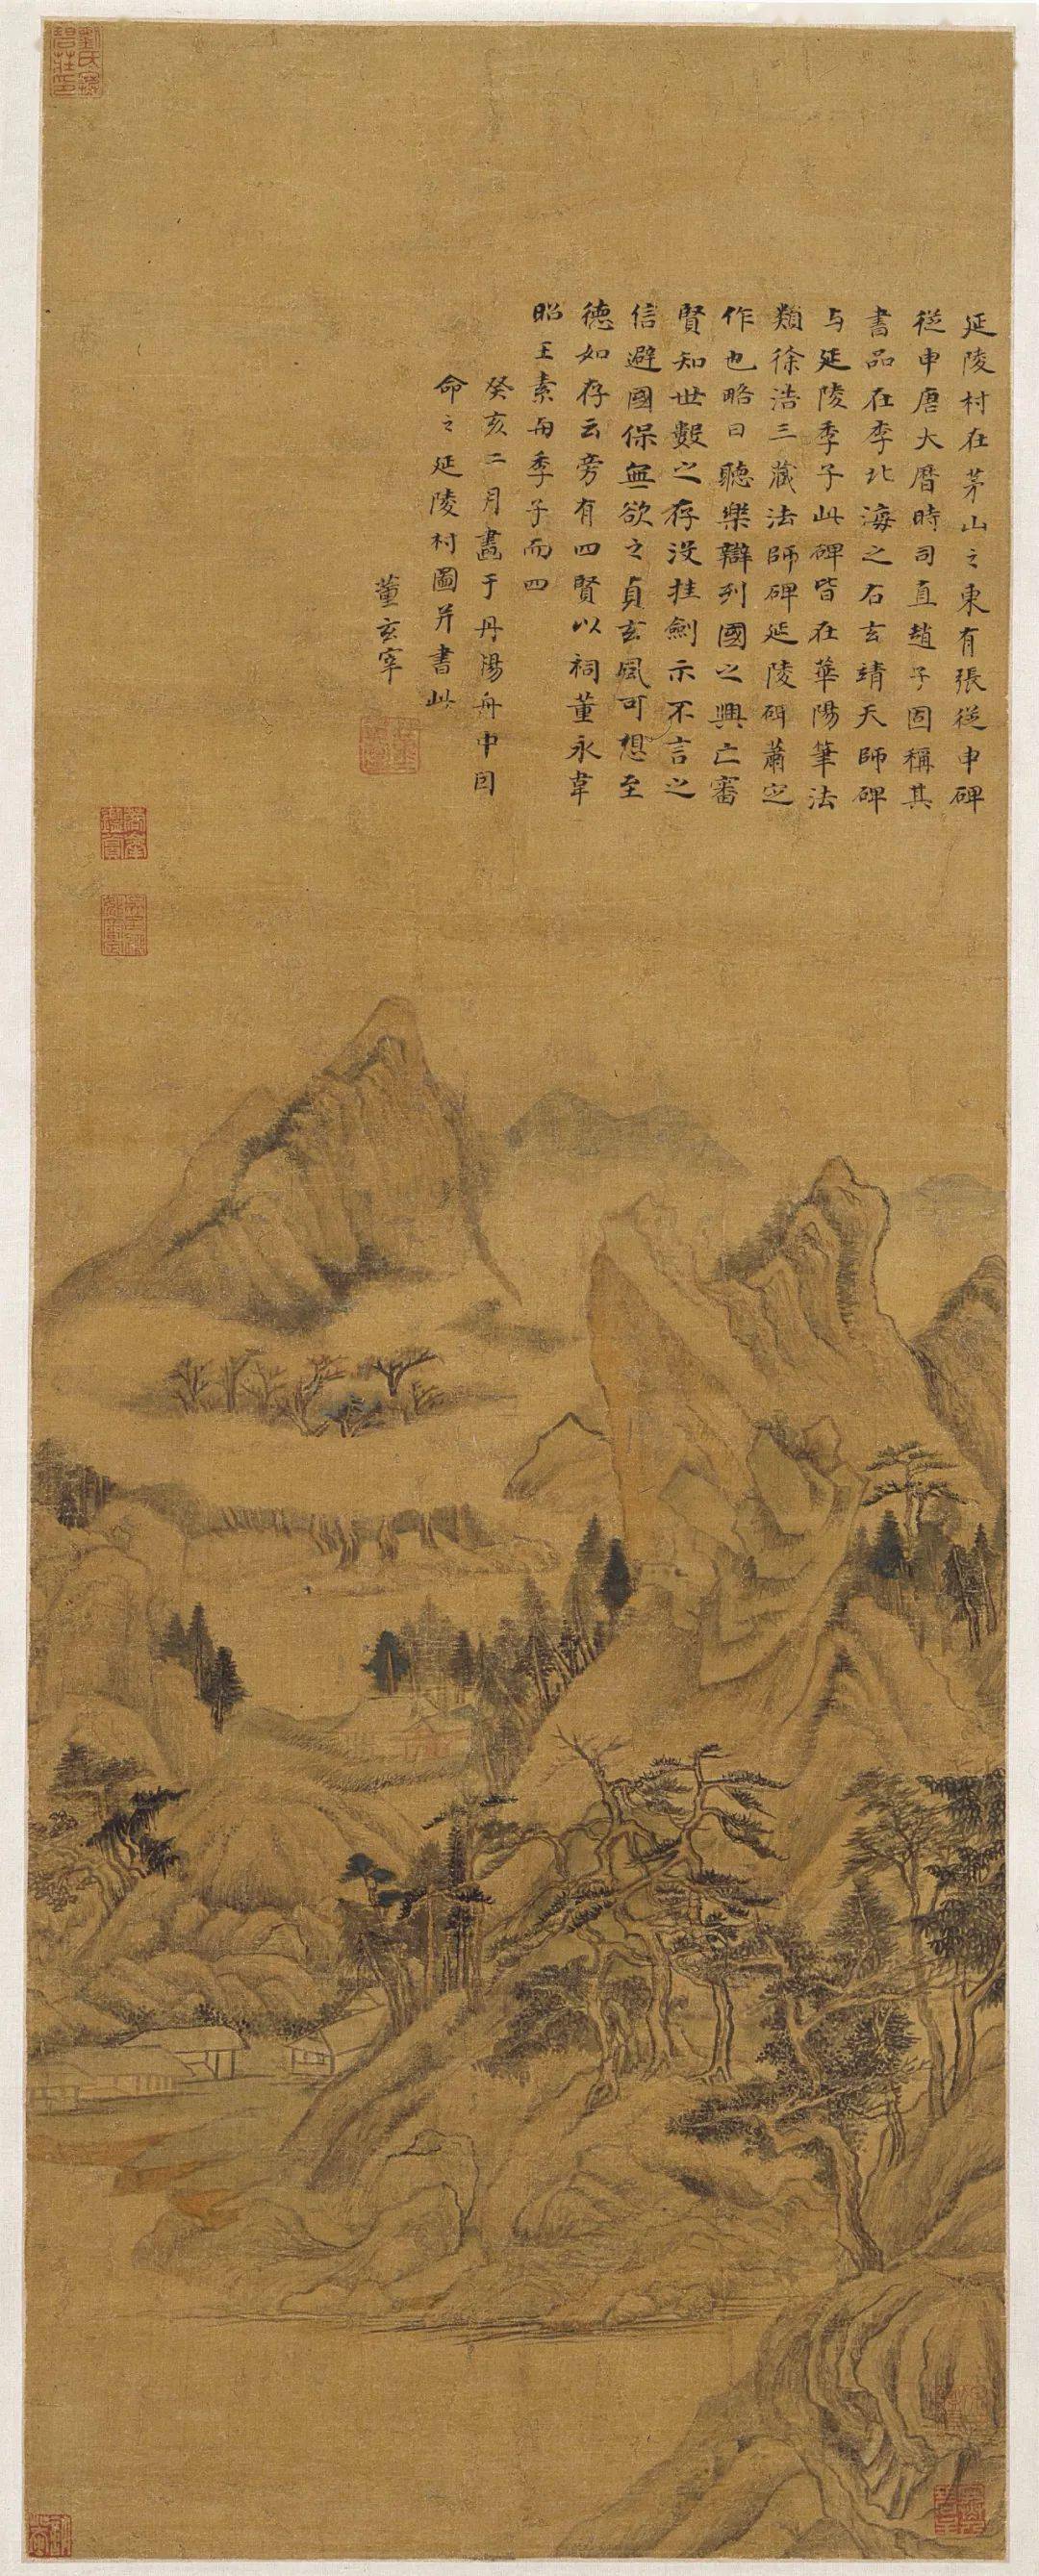 延陵村在茅山之東有張從申碑
從申唐大曆時司直趙子固稱其
書品在李北海之右玄靖天師碑
与延陵季子此碑皆在華陽筆法
類徐浩三藏法師碑延陵碑蕭定
作也略曰聽樂辯列國之興亡審
賢知世數之存沒挂劍示不言之
信避國保無欲之貞玄風可想至
德如存云旁有四賢以祠董永韋
昭王素與季子而四
癸亥二月畫于丹陽舟中因
命之延陵村圖并書此
董玄宰